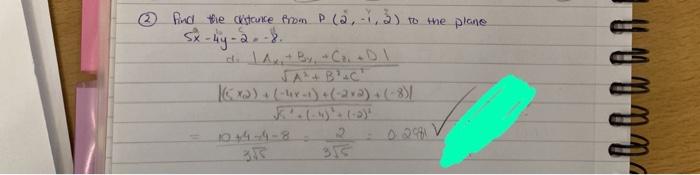 ② Find the distance from P (2, -1, 2) to the plane
5x - 4y - 2 = -8.
d: |Ax₁ + By₁ + Cz₁ + D|
√A² + B² + C²
|(5×2) + (-4×-1) + (-2×2) + (-8)|
√5² + (-4)² + (-2)²
= 10+4-4-8 = 2 = 0.2981 ✓
3√5 3√5